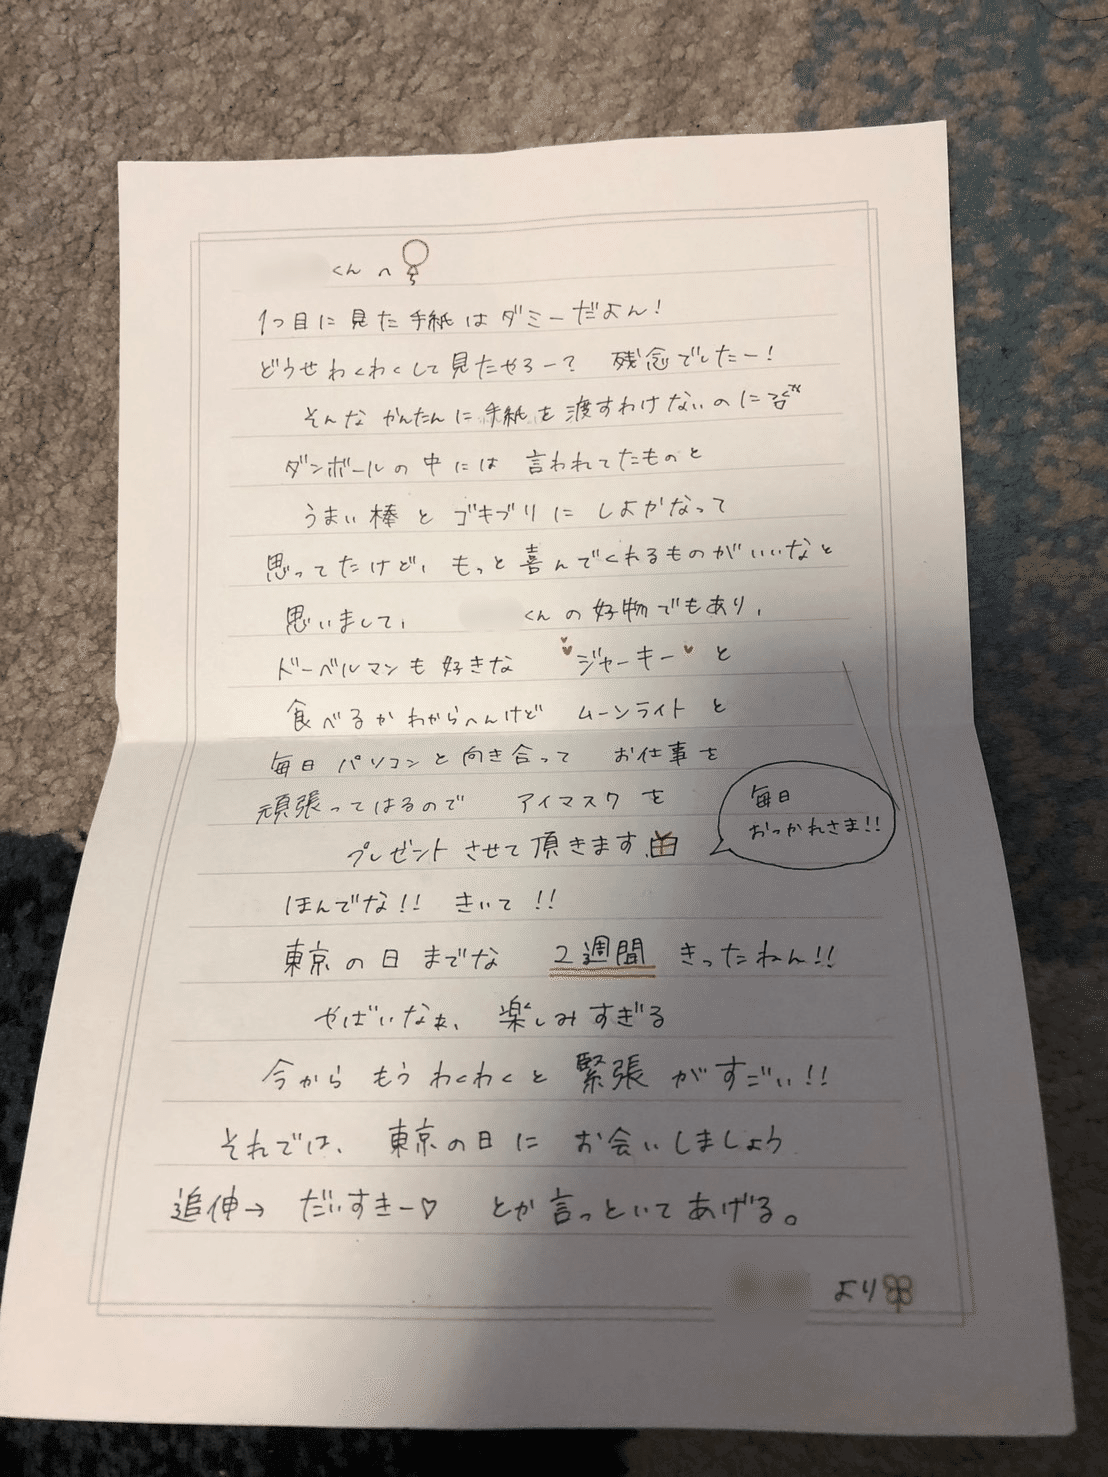 くんへ
1つ目に見た手紙はダミーだよん!
どうせわくわくして見たやろー? 残念でしたー!
そんなかんたんに手紙を渡すわけないのに
ダンボールの中には 言われてたものと
うまい棒とゴキブリにしよかなって
思ってたけど、もっと喜んでくれるものがいいなと
思いまして、 くんの好物でもあり、
ドーベルマンも好きな ジャーキー と
食べるかわからへんけど ムーンライトと
毎日パソコンと向き合って お仕事を
頑張ってはるので アイマスクを
プレゼントさせて頂きます
毎日
おつかれさま!!
ほんでな!! きいて!!
東京の日までな 2週間 きったねん!!
やばいなぁ、楽しみすぎる
今から もう わくわくと 緊張がすごい!!
それでは、東京の日に お会いしましょう
追伸→ だいすきー♡ とか言っといてあげる。
より